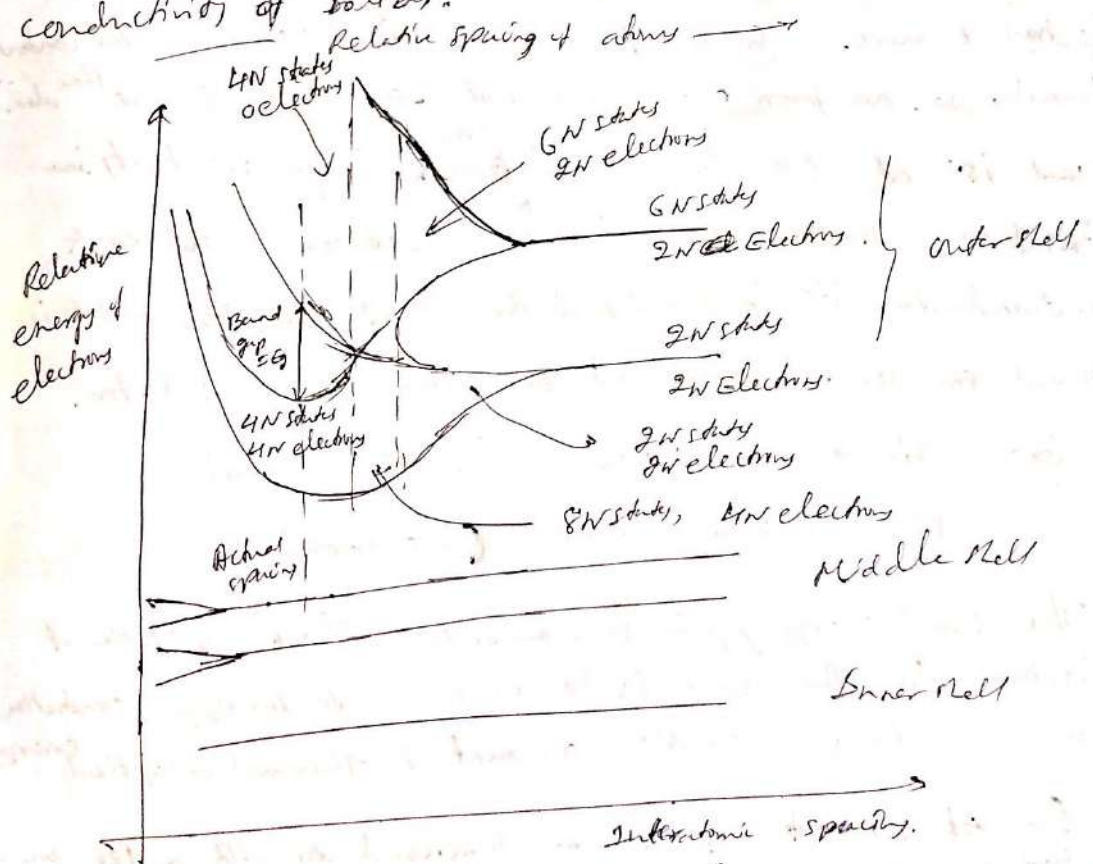 conductivity of
Relative spacing of atoms
4N states
0 electrons
6N states
2N electrons
6N states
2N Electrons
outer shell
Relative
energy of
electrons
Band
gap
= Eg
2N states
2N Electrons.
4N states
4N electrons
2N states
2N electrons
8N states, 4N electrons
Actual
spacing
Middle shell
Inner shell
Interatomic spacing.